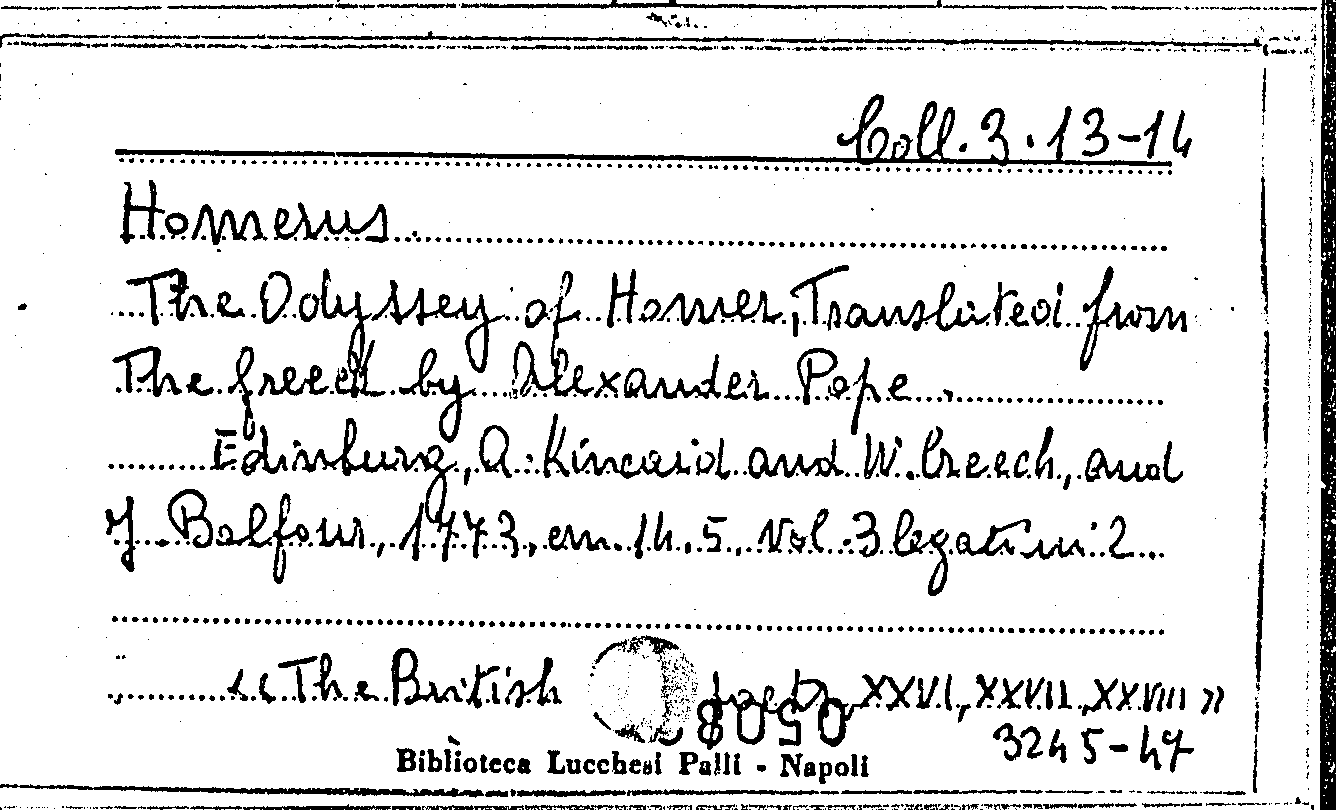 Coll. 3. 13-14
Homerus.
The Odyssey of Homer, Translated from
The greeck by Alexander Pope.
Edinburg, A. Kincaid and W. Creech, and
J. Balfour, 1773, cm. 14.5, vol. 3 legati in 2
«The British poets, XXVI, XXVII, XXVIII»
3245-47
Biblioteca Lucchesi Palli - Napoli